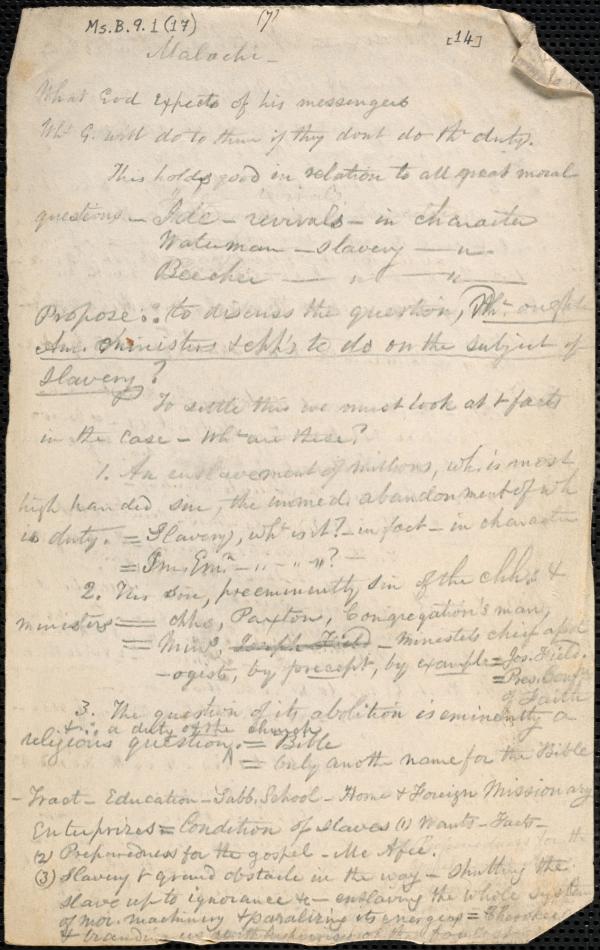 Ms.B.9.1(17) (7) [14]
Malachi -
What God expects of his messengers
Wht G. will do to them if they dont do thr duty.
This holds good in relation to all great moral
questions - - revivals - in character
Waterman - slavery - "
Beecher - " - "
Propose to discuss the question, Wht ought
Am. ministers & chh's to do on the subject of
slavery?
To settle this we must look at t facts
in the case - Wht are these?
1. An enslavement of millions, wh. is most
high handed sin, the immed. abandonment of wh
is duty. = Slavery, wht is it? - in fact - in character
= Im. Em. - " - " - "? -
2. This sin, preeminently sin of the chhs &
ministers = chhs, Paxton, Congregation's man,
= Mins, Joseph Field - ministers chief apol
-ogists, by precept, by example = Jos. Field.
= Pres. Conf.
of Faith
3. The question of its abolition is eminently a
& a duty of the church
religious question. ^ = Bible
= only anothr name for the Bible
- Tract - Education - Sabb. School - Home & Foreign Missionary
Enterprizes = Condition of slaves (1) Wants - Facts -
(2) Preparedness for the gospel - Mc Afee.
(3) Slavery t grand obstacle in the way - shutting the
slave up to ignorance &c - enslaving the whole system
of mor. machinery & paralizing its energies = Cherokee